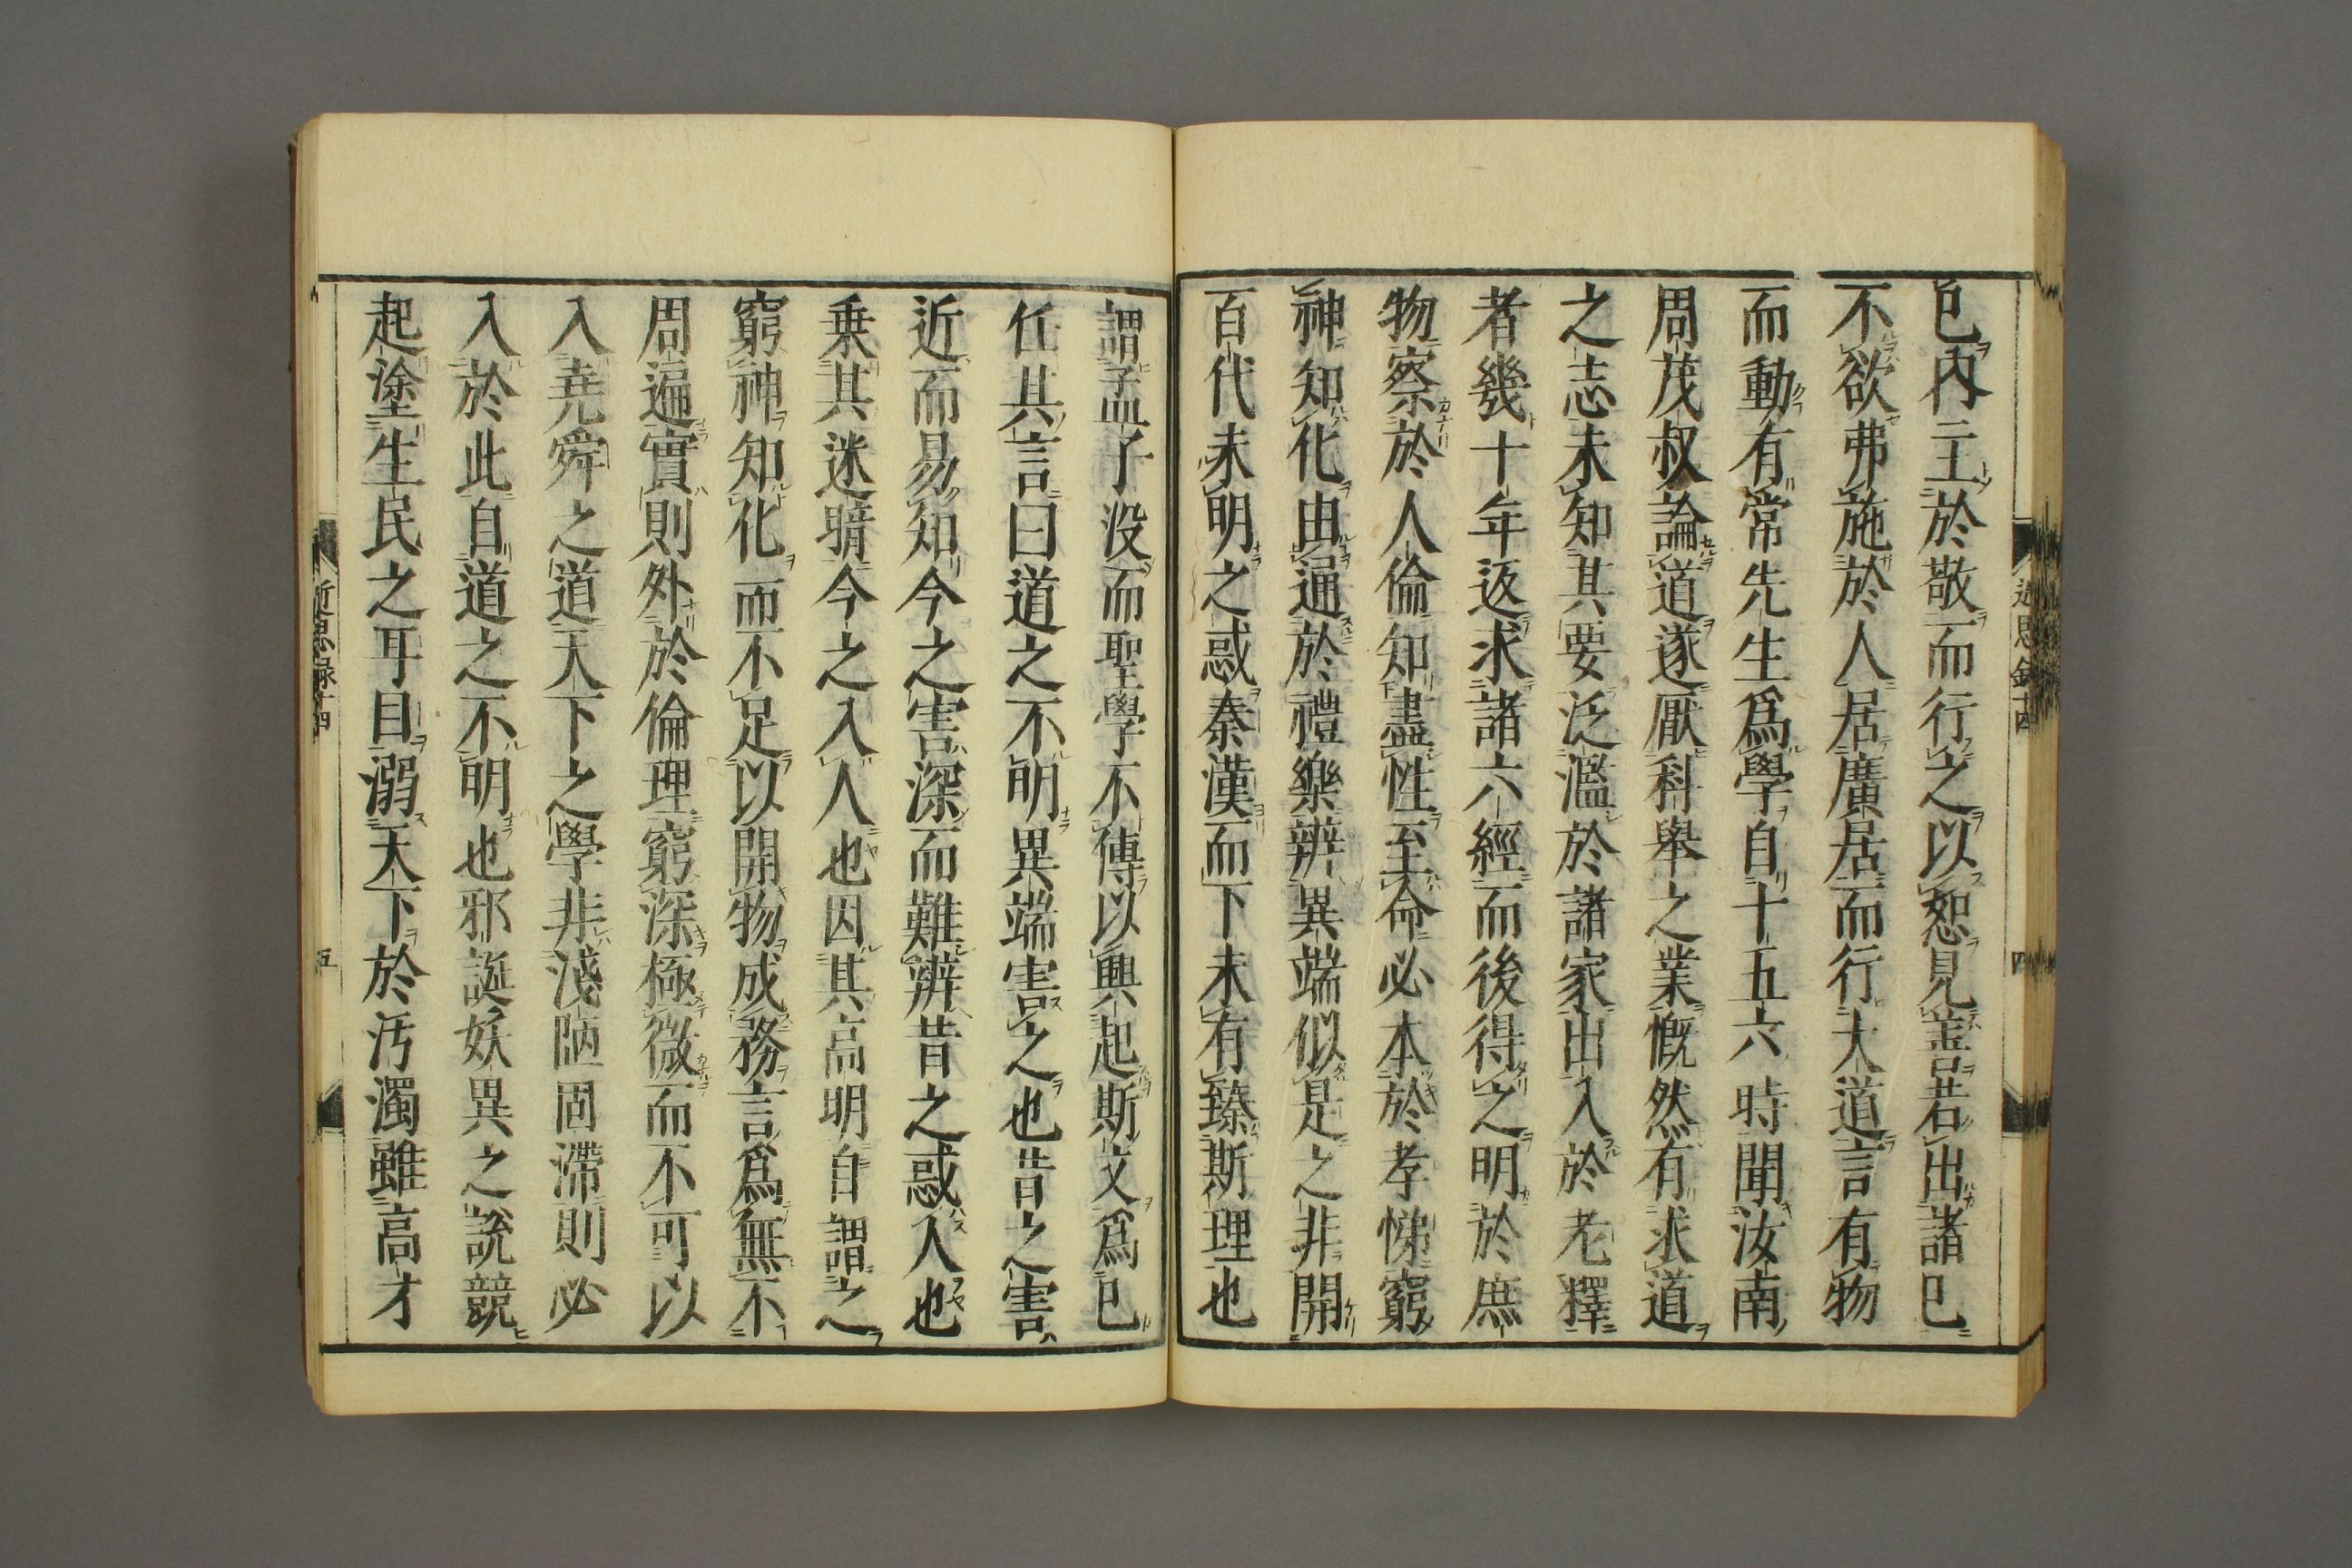 已內主於敬而行之以恕見善若出諸已
不欲弗施於人居廣居而行大道言有物
而動有常先生爲學自十五六時聞汝南
周茂叔論道遂厭科舉之業慨然有求道
之志未知其要泛濫於諸家出入於老釋
者幾十年返求諸六經而後得之明於庶
物察於人倫知盡性至命必本於孝悌窮
神知化由通於禮樂辨異端似是之非開
百代未明之惑秦漢而下未有臻斯理也
謂孟子没而聖學不傳以興起斯文爲已
任其言曰道之不明異端害之也昔之害
近而易知今之害深而難辨昔之惑人也
乗其迷暗今之入人也因其高明自謂之
窮神知化而不足以開物成務言爲無不
周遍實則外於倫理窮深極微而不可以
入尭舜之道天下之學非淺陋固滯則必
入於此自道之不明也邪誕妖異之説競
起塗生民之耳目溺天下於汚濁雖高才
近思録十四
四
近思録十四
五